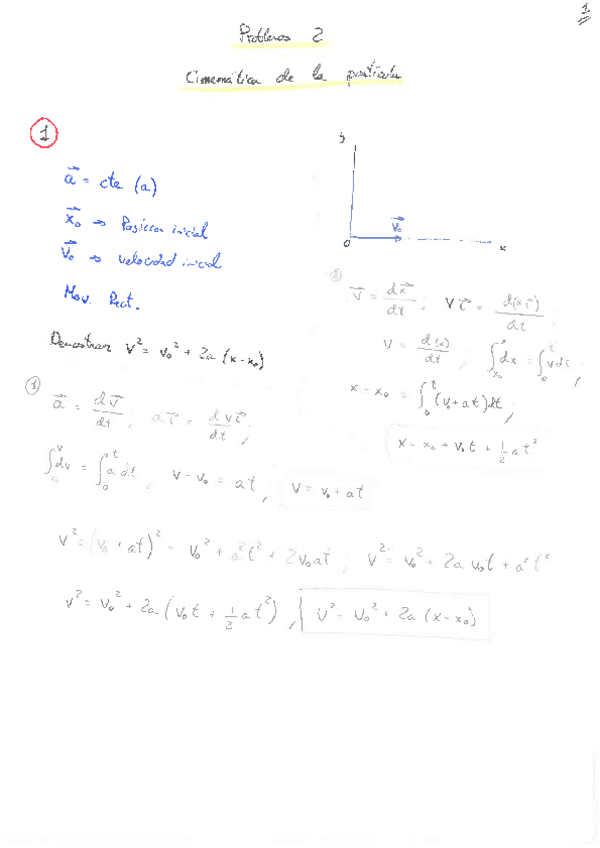 1
Problemas 2
Cinemática de la partícula
1
y
a⃗ = cte (a)
x⃗₀ → Posición inicial
v⃗₀ → velocidad inicial
Mov. Rect.
V⃗₀
0
x
Demostrar V² = V₀² + 2a (x-x₀)
① a⃗ = dv⃗/dt ; a i⃗ = d v i⃗/dt ;
∫dv = ∫₀ᵗ a dt ; V - V₀ = at ; V = V₀ + at
② V⃗ = dx⃗/dt ; V i⃗ = d(x i⃗)/dt ;
V = d(x)/dt ; ∫ₓ₀ˣ dx = ∫₀ᵗ v dt ;
x - x₀ = ∫₀ᵗ (V₀ + at) dt ;
x - x₀ + V₀t + 1/2 at²
V² = (V₀ + at)² = V₀² + a²t² + 2V₀at ; V² = V₀² + 2a V₀t + a²t²
V² = V₀² + 2a (V₀t + 1/2 at²) ; V² = V₀² + 2a (x-x₀)